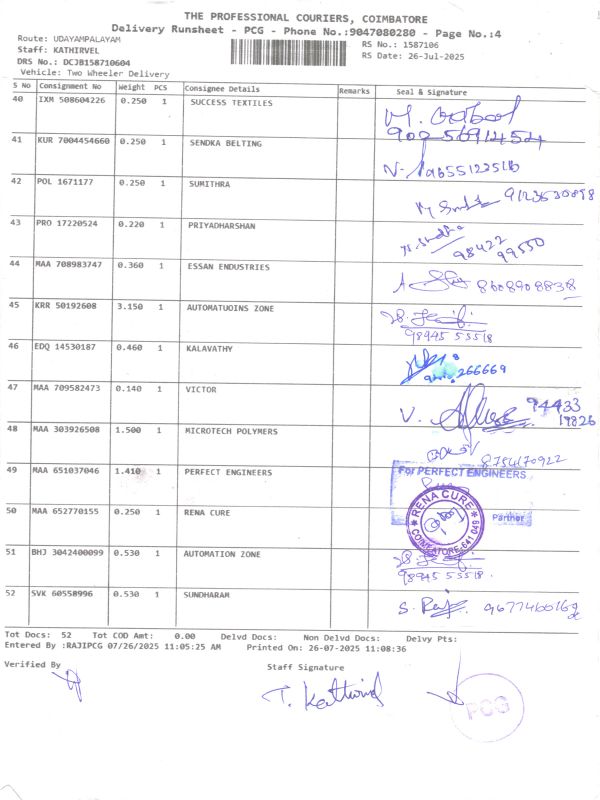 THE PROFESSIONAL COURIERS, COIMBATORE
Delivery Runsheet - PCG - Phone No.:9047080280 - Page No.:4
Route: UDAYAMPALAYAM RS No.: 1587106
Staff: KATHIRVEL RS Date: 26-Jul-2025
DRS No.: DCJB158710604
Vehicle: Two Wheeler Delivery
S No Consignment No Weight PCS Consignee Details Remarks Seal & Signature
40 IXM 508604226 0.250 1 SUCCESS TEXTILES
41 KUR 7004454660 0.250 1 SENDKA BELTING
42 POL 1671177 0.250 1 SUMITHRA 9123530898
43 PRO 17220524 0.220 1 PRIYADHARSHAN 98422 99550
44 MAA 708983747 0.360 1 ESSAN ENDUSTRIES 8608908838
45 KRR 50192608 3.150 1 AUTOMATUOINS ZONE 98945 53518
46 EDQ 14530187 0.460 1 KALAVATHY 266669
47 MAA 709582473 0.140 1 VICTOR V. 94433 19826
48 MAA 303926508 1.500 1 MICROTECH POLYMERS 8754170922
49 MAA 651037046 1.410 1 PERFECT ENGINEERS For PERFECT ENGINEERS
Partner
50 MAA 652770155 0.250 1 RENA CURE RENA CURE COIMBATORE-641 049
51 BHJ 3042400099 0.530 1 AUTOMATION ZONE 98945 53518
52 SVK 60558996 0.530 1 SUNDHARAM
Tot Docs: 52 Tot COD Amt: 0.00 Delvd Docs: Non Delvd Docs: Delvy Pts:
Entered By :RAJIPCG 07/26/2025 11:05:25 AM Printed On: 26-07-2025 11:08:36
Verified By Staff Signature
PCG